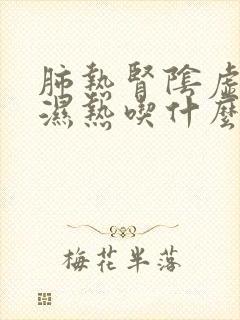 肺熱腎陰虛
濕熱喫什麼
梅花半落